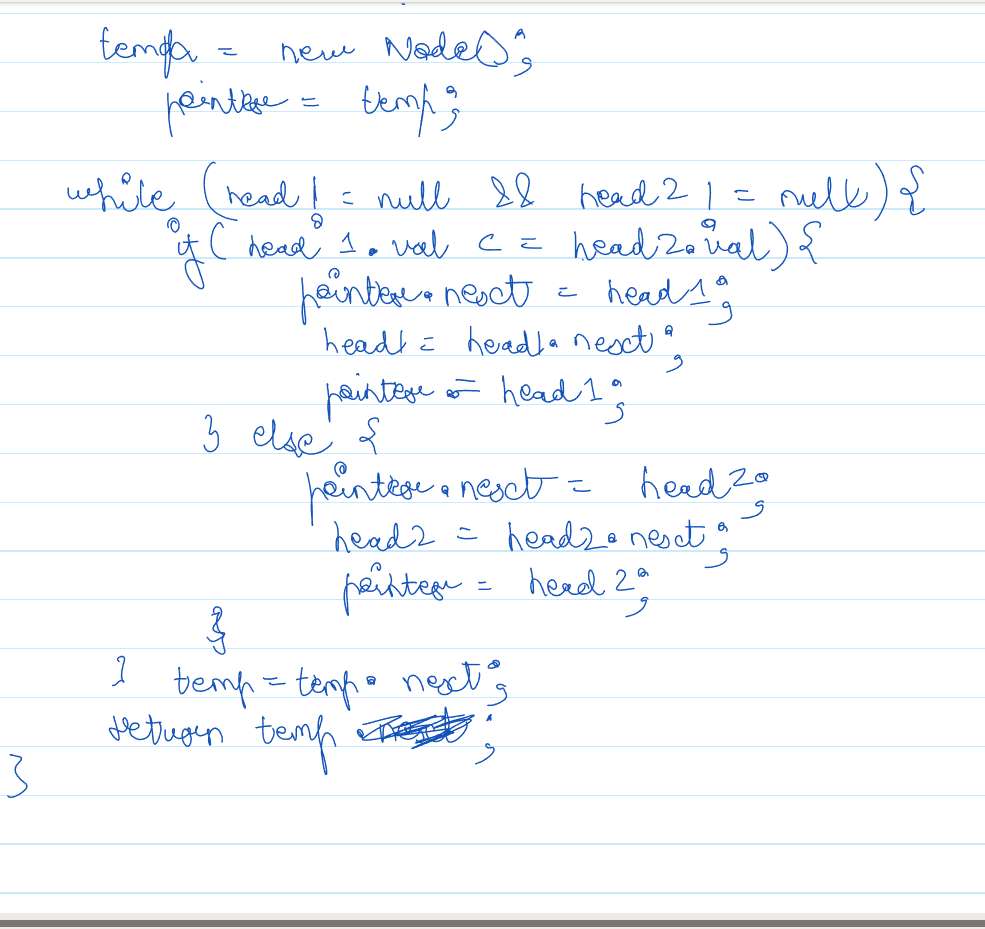 temp = new Node();
pointer = temp;
while (head1 != null && head2 != null) {
if (head1.val <= head2.val) {
pointer.next = head1;
head1 = head1.next;
pointer = head1;
} else {
pointer.next = head2;
head2 = head2.next;
pointer = head2;
}
} temp = temp.next;
return temp ;
}